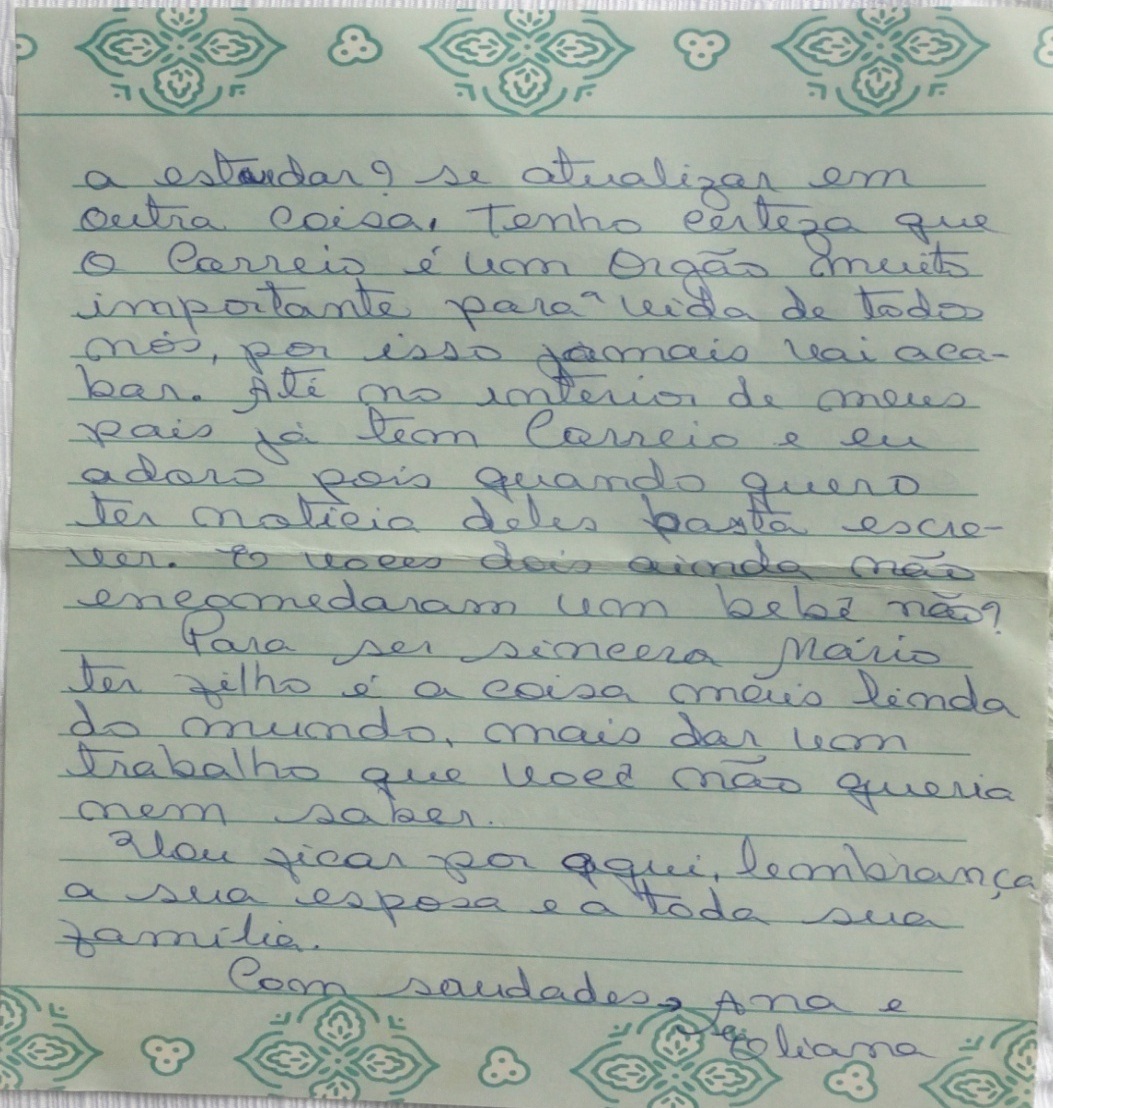 a estudar? se atualizar em
outra coisa. Tenho certeza que
o Correio é um Orgão muito
importante para a vida de todos
nós, por isso jamais vai aca-
bar. Até no interior de meus
pais já tem Correio e eu
adoro pois quando quero
ter noticia deles basta escre-
ver. E voces dois ainda não
encomedaram um bebê não?
Para ser sincera Mário
ter filho é a coisa mais linda
do mundo, mais dar um
trabalho que você não queria
nem saber.
Vou ficar por aqui, lembrança
a sua esposa e a toda sua
família.
Com saudades, Ana e
Eliana